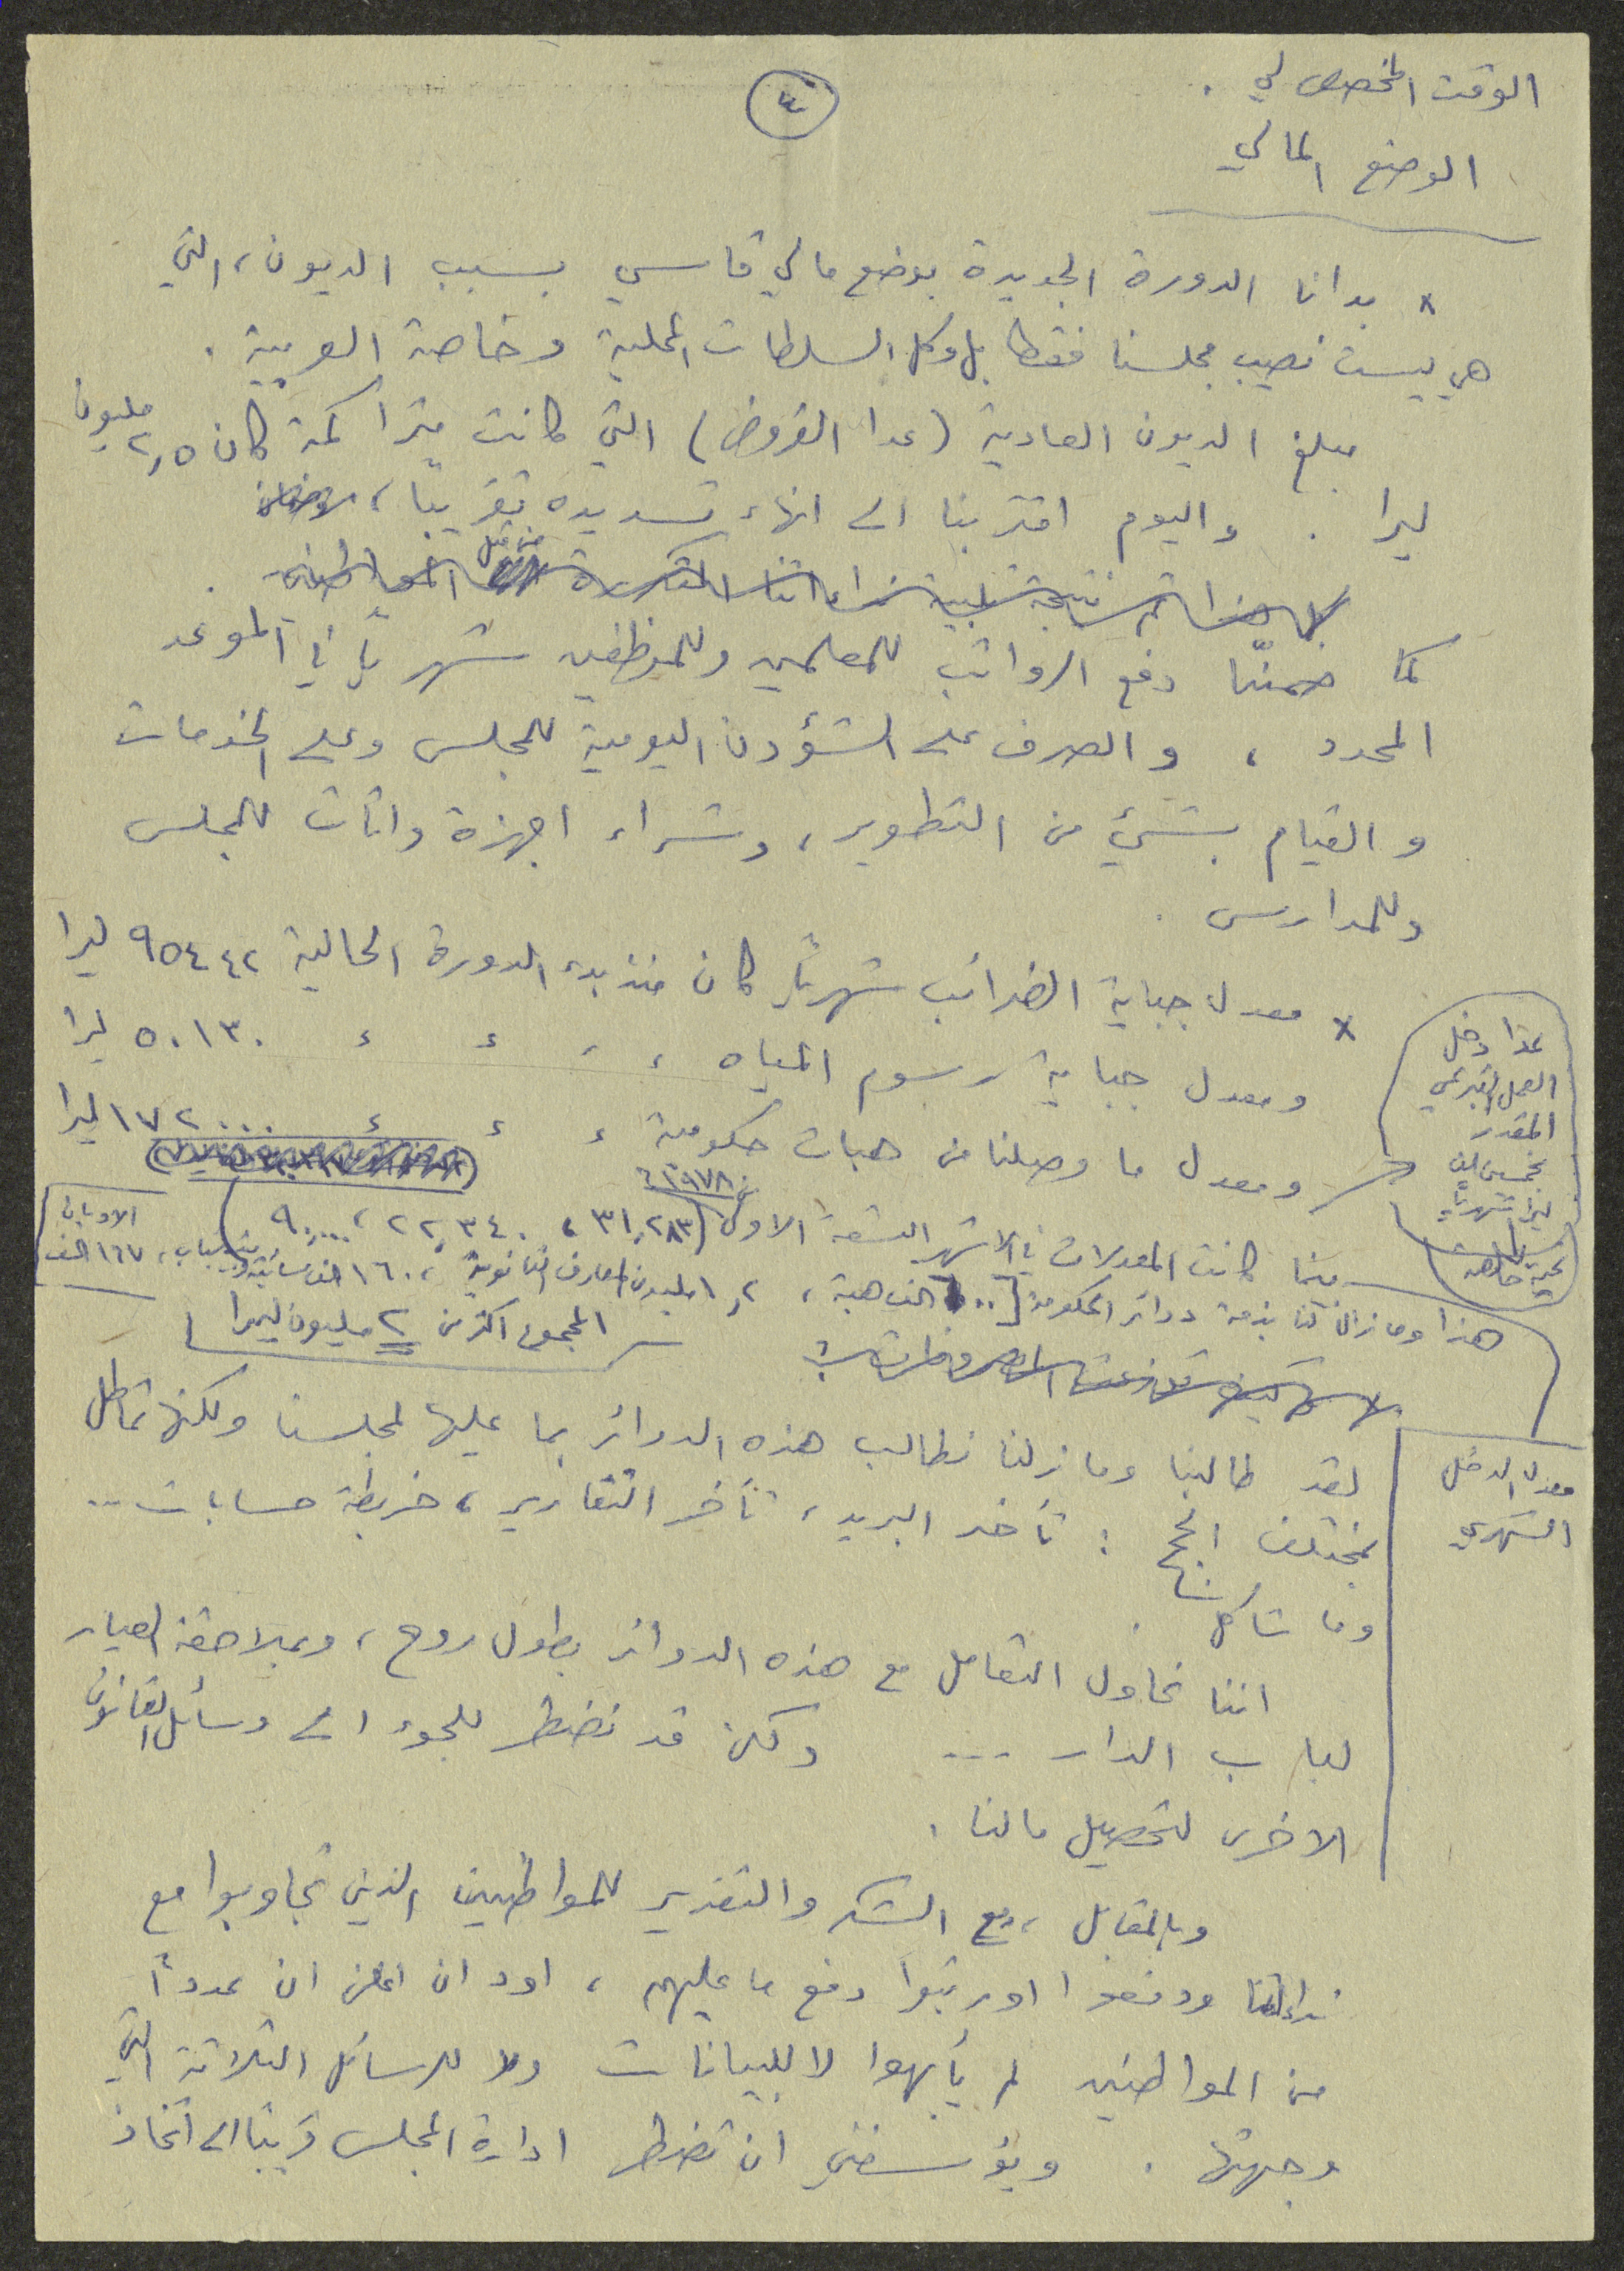 الوقت المخصص لي .
٤
الوضع المالي
× بدانا الدورة الجديدة بوضع مالي قاسي بسبب الديون، التي
هي ليست نصيب مجلسنا فقط بل وكل السلطات المحلية وخاصة العربية .
مبلغ الديون العادية (عدا القروض) التي كانت متراكمة كان ٢,٥ مليون
ليرا . واليوم اقتربنا الى انهاء تسديده تقريبًا،
من قبل
كما ضمنّا دفع الرواتب للمعلمين وللموظفين شهريًا في الموعد
المحدد ، والصرف على الشؤون اليومية للمجلس وعلى الخدمات
والقيام بشيء من التطوير، وشراء اجهزة واثاث للمجلس
وللمدارس .
× معدل جباية الضرائب شهريًا كان منذ بدء الدورة الحالية ٩٥٤٤٢ ليرا
ومعدل جباية رسوم المياه ، ، ، ، ٥٠١٣٠ ليرا
ومعدل ما وصلنا من هبات حكومية ، ، ، ١٧٢٠٠٠ ليرا
عدا دخل
العمل
المقدر
بخمسين الف
ليرا شهريًا
بينما كانت المعدلات في الاشهر التسعة الاولى (٣١,٢٨٣ ، ٢٢,٣٤٠ ، ٩٠,٠٠٠)
هذا وما زال لنا بذمة دوائر الحكومة الف هبة ، ١,٢ مليون المعارف الثانوية ، ١٦٠ الف ، ١٦٧ الف
المجموع اكثر من ٢ مليون ليرا
معدل الدخل
الشهري
لقد طالبنا وما زلنا نطالب هذه الدوائر بما عليها لمجلسنا ولكنها تماطل
بمختلف الحجج : تأخر البريد ، تأخر التقارير ، خربطة حسابات ...
وما شاكل .
اننا نحاول التعامل مع هذه الدوائر بطول روح ، وبملاحقة العيار
لباب الدار ... ولكن قد نضطر للجوء الى وسائل القانون
الاخرى لتحصيل مالنا .
وبالمقابل ، مع الشكر والتقدير للمواطنين الذين تجاوبوا مع
نداءاتنا ودفعوا او رتبوا دفع ما عليهم ، اود ان اعلن ان عددًا
من المواطنين لم يأبهوا لا للبيانات ولا للرسائل الثلاثة التي
وجهتها . ويؤسفني ان تضطر ادارة المجلس قريبًا الى اتخاذ